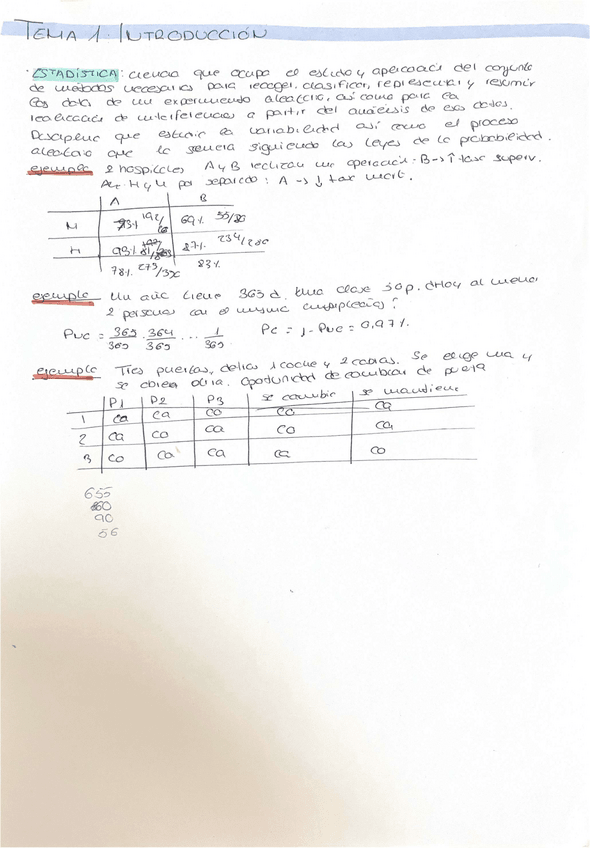 TEMA 1: INTRODUCCIÓN
· ESTADÍSTICA: ciencia que ocupa el estudio y aplicación del conjunto
de métodos necesarios para recoger, clasificar, representar y resumir
los datos de un experimento aleatorio, así como para la
realización de interferencias a partir del análisis de esos datos.
Disciplina que estudia la variabilidad así como el proceso
aleatorio que la genera siguiendo las leyes de la probabilidad.
ejemplo 2 hospitales A y B realizan una operación: B→↑ tasa superv.
H y M por separado: A →↓ tasa mort.
A B
M 192/ 69% 55/80
H 87% 234/
78% 273/350 83%
ejemplo Un año tiene 365 d. Una clase 50 p. ¿Hay al menos
2 personas con el mismo cumpleaños?
Pnc = 365/365 · 364/365 ... 1/365 Pc = 1 - Pnc = 0,97%
ejemplo Tres puertas, detrás 1 coche y 2 cabras. Se elige una y
se abre otra. Oportunidad de cambiar de puerta
P1 P2 P3 se cambia se mantiene
1 ca ca co co ca
2 ca co ca co ca
3 co ca ca ca co
655
860
90
56